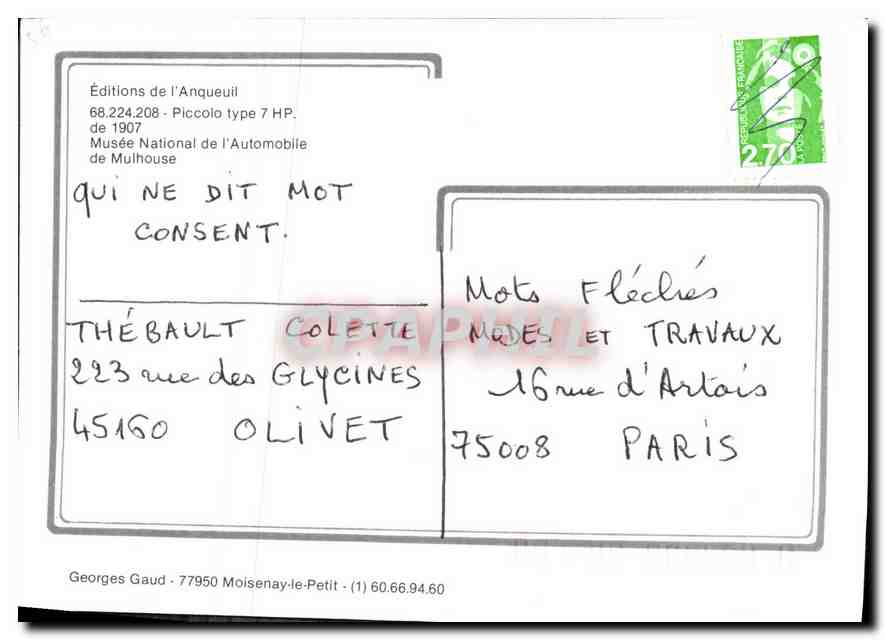 Éditions de l'Anqueuil
68.224.208 - Piccolo type 7 HP.
de 1907
Musée National de l'Automobile
de Mulhouse
QUI NE DIT MOT
CONSENT.
THÉBAULT COLETTE
223 rue des GLYCINES
45160 OLIVET
RÉPUBLIQUE FRANÇAISE
2,70
LA POSTE
Mots Fléchés
MODES ET TRAVAUX
16 rue d'Artois
75008 PARIS
CPAPHIL
Georges Gaud - 77950 Moisenay-le-Petit - (1) 60.66.94.60